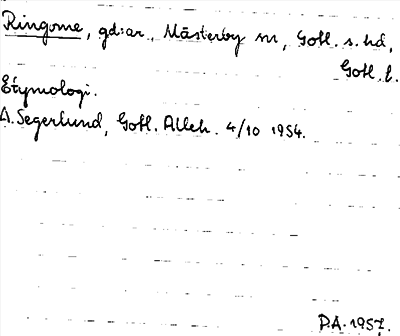 Ringome, gd:ar, Mästerby sn, Gotl. s. hd,
Gotl. l.
Etymologi.
A. Segerlund, Gotl. Alleh. 4/10 1954.
P.A. 1957.